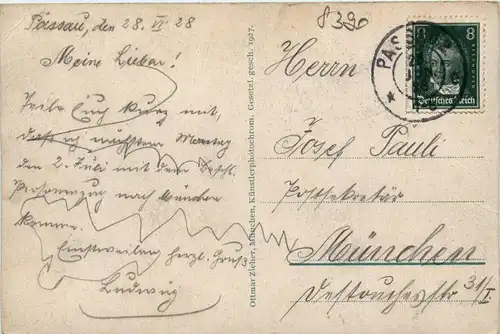 Passau, den 28. VI 28
Meine Lieben!
Teile Euch kurz mit,
daß ich nächsten Montag
den 2. Juli mit dem beschl.
Personenzug nach München
komme.
Einstweilen herzl. Gruß
Ludwig
Ottmar Zieher, München, Künstlerphotochrom. Gesetzl. gesch. 1927.
8390
PASSAU
8 8
Deutsches Reich
Herrn
Josef Pauli
Postsekretär
München
Destouchesstr 31/I